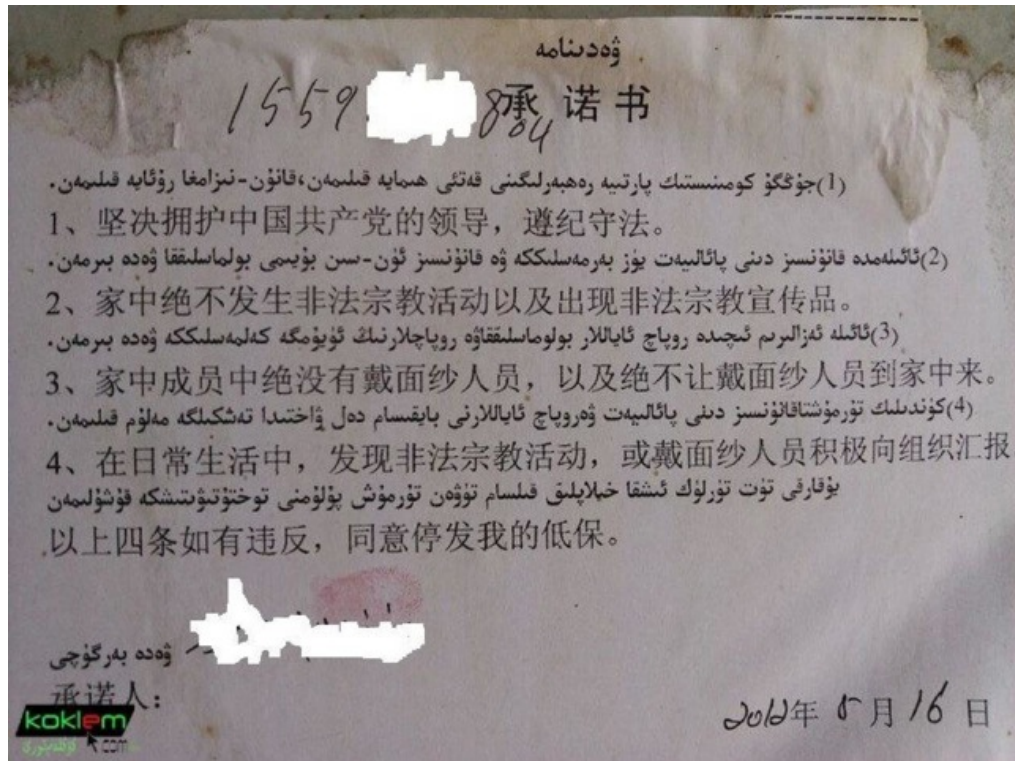 ۋەدىنامە
1559 8804
承诺书
(1)جۇڭگۇ كومىنىستىك پارتىيە رەھبەرلىگىنى قەتئى ھىمايە قىلىمەن،قانۇن-نىزامغا رۇئايە قىلىمەن.
1、坚决拥护中国共产党的领导，遵纪守法。
(2)ئائىلەمدە قانۇنسىز دىنى پائالىيەت يۈز بەرمەسلىككە ۋە قانۇنسىز ئۈن-سىن بۇيىمى بولماسلىققا ۋەدە بىرمەن.
2、家中绝不发生非法宗教活动以及出现非法宗教宣传品。
(3)ئائىلە ئەزالىرىم ئىچىدە روپاچ ئاياللار بولوماسلىققاۋە روپاچلارنىڭ ئۈيۈمگە كەلمەسلىككە ۋەدە بىرمەن.
3、家中成员中绝没有戴面纱人员，以及绝不让戴面纱人员到家中来。
(4)كۈندىلىك تۇرمۇشتاقانۇنسىز دىنى پائالىيەت ۋەروپاچ ئاياللارنى بايقىسام دەل ۋاختىدا تەشكىلگە مەلۇم قىلىمەن.
4、在日常生活中，发现非法宗教活动，或戴面纱人员积极向组织汇报
يۇقارقى تۆت تۈرلۈك ئىشقا خىلاپلىق قىلسام تۆۋەن تۇرمۇش پۇلۇمنى توختۇتىۋىتىشكە قۇشۇلىمەن
以上四条如有违反，同意停发我的低保。
ۋەدە بەرگۈچى
承诺人：
2012年 5月16日
koklem
.com